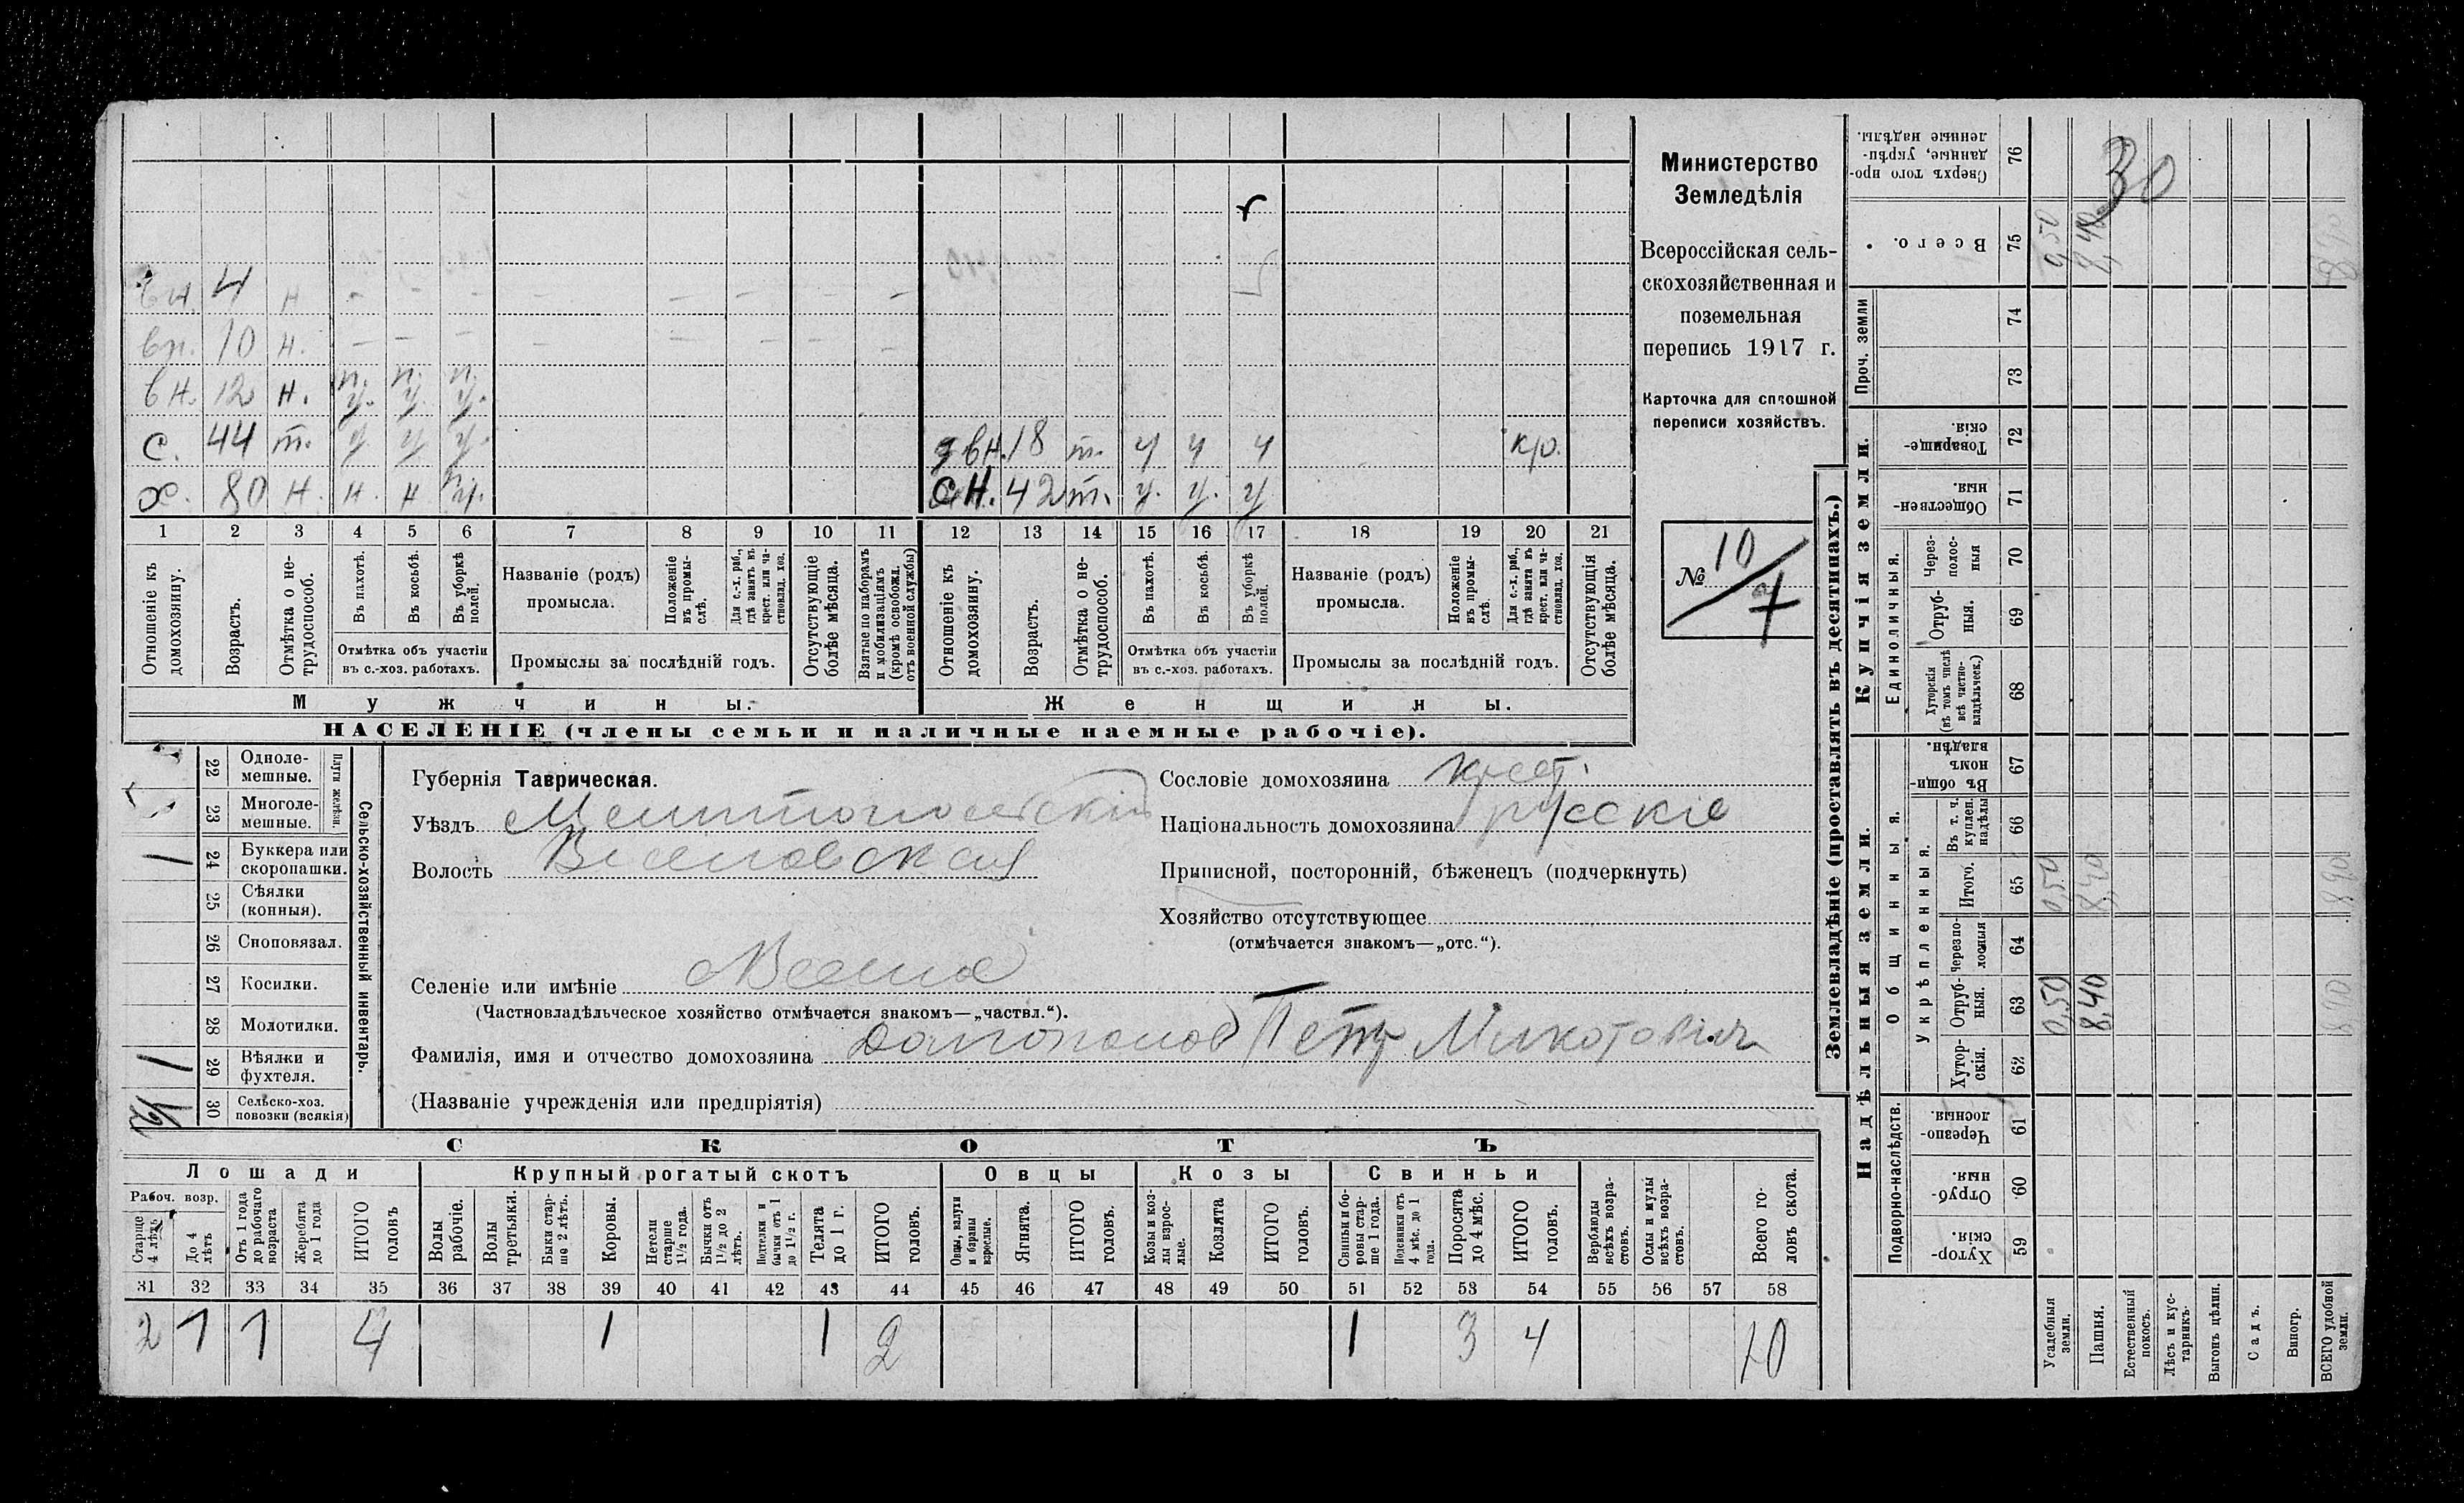 Министерство
Земледѣлія
Всероссійская сель-
скохозяйственная и
поземельная
перепись 1917 г.
Карточка для сплошной
переписи хозяйствъ.
№ 10/7
вн. 4 н - - - - - - - -
вн. 10 н. - - - - - - - -
вн. 12 н. п. у. п. у. п. у.
с. 44 т. у у у. двн. 18 т. ч ч ч кр.
х. 80 н. н. н сн. 42 т. у. у. у
1 2 3 4 5 6 7 8 9 10 11 12 13 14 15 16 17 18 19 20 21
Отношеніе къ домохозяину.
Возрастъ.
Отмѣтка о не-трудоспособ.
Въ пахотѣ.
Въ косьбѣ.
Въ уборкѣ полей.
Отмѣтка объ участіи въ с.-хоз. работахъ.
Названіе (родъ) промысла.
Положеніе въ промы-слѣ.
Для с.-х. раб., гдѣ занятъ въ крест. или ча-стновлад. хоз.
Промыслы за послѣдній годъ.
Отсутствующіе болѣе мѣсяца.
Взятые по наборамъ и мобилизаціямъ (кромѣ освобожд. отъ военной службы)
Отношеніе къ домохозяину.
Возрастъ.
Отмѣтка о не-трудоспособ.
Въ пахотѣ.
Въ косьбѣ.
Въ уборкѣ полей.
Отмѣтка объ участіи въ с.-хоз. работахъ.
Названіе (родъ) промысла.
Положеніе въ промы-слѣ.
Для с.-х. раб., гдѣ занята въ крест. или ча-стновлад. хоз.
Промыслы за послѣдній годъ.
Отсутствующія болѣе мѣсяца.
Мужчины. Женщины.
НАСЕЛЕНІЕ (члены семьи и наличные наемные рабочіе).
Сельско-хозяйственный инвентарь.
Плуги желѣзн.
22 Одноле-мешные.
23 Многоле-мешные.
1 24 Буккера или скоропашки.
25 Сѣялки (конныя).
26 Сноповязал.
27 Косилки.
28 Молотилки.
1 29 Вѣялки и фухтеля.
30 Сельско-хоз. повозки (всякія)
Губернія Таврическая.
Уѣздъ Мелитопольскій
Волость
Сословіе домохозяина крест.
Національность домохозяина русскіе
Приписной, посторонній, бѣженецъ (подчеркнуть)
Хозяйство отсутствующее
(отмѣчается знакомъ—„отс.“).
Селеніе или имѣніе
(Частновладѣльческое хозяйство отмѣчается знакомъ—„частвл.“).
Фамилія, имя и отчество домохозяина Петр
(Названіе учрежденія или предпріятія)
СКОТЪ
Лошади Крупный рогатый скотъ Овцы Козы Свиньи
Рабоч. возр.
Старше 4 лѣтъ
До 4 лѣтъ
Отъ 1 года до рабочаго возраста
Жеребята до 1 года
ИТОГО головъ
Волы рабочіе.
Волы третьяки.
Быки стар-ше 2 лѣтъ.
Коровы.
Нетели старше 1½ года.
Бычки отъ 1½ до 2 лѣтъ.
Подтелки и бычки отъ 1 до 1½ г.
Телята до 1 г.
ИТОГО головъ.
Овцы, валухи и бараны взрослые.
Ягнята.
ИТОГО головъ.
Козы и коз-лы взрос-лые.
Козлята
ИТОГО головъ.
Свиньи и бо-ровы стар-ше 1 года.
Подсвинки отъ 4 мѣс. до 1 года.
Поросята до 4 мѣс.
ИТОГО головъ.
Верблюды всѣхъ возра-стовъ.
Ослы и мулы всѣхъ возра-стовъ.
Всего го-ловъ скота.
31 32 33 34 35 36 37 38 39 40 41 42 43 44 45 46 47 48 49 50 51 52 53 54 55 56 57 58
2 1 1 4 1 1 2 1 3 4 10
Землевладѣніе (проставлять въ десятинахъ.)
Надѣльныя земли. Купчія земли. Проч. земли
Подворно-наслѣдств. Общинныя. Укрѣпленныя. Единоличныя.
Хутор-скія. 59
Отруб-ныя. 60
Черезпо-лосныя. 61
Хутор-скія. 62
Отруб-ныя. 63 0,50 8,40 8,90
Черезпо-лосныя 64
Итого. 65 0,50 8,40 8,90
Въ т. ч. куплен. надѣлы 66
Въ общин-номъ владѣн. 67
Хуторскія (въ томъ числѣ всѣ частно-владѣльческ.) 68
Отруб-ныя. 69
Через-полос-ныя 70
Обществен-ныя. 71
Товарище-скія. 72
73
74
Всего. 75 0,50 8,40 8,90
Сверхъ того про-данные, укрѣп-ленные надѣлы. 76
30
Усадебныя земли.
Пашня.
Естественный покосъ.
Лѣсъ и кус-тарникъ.
Выгонъ цѣлин.
Садъ.
Виногр.
ВСЕГО удобной земли.